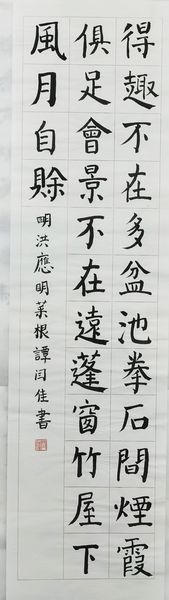 得趣不在多盆池拳石間煙霞
俱足會景不在遠蓬窗竹屋下
風月自賒
明洪應明菜根譚閆佳書